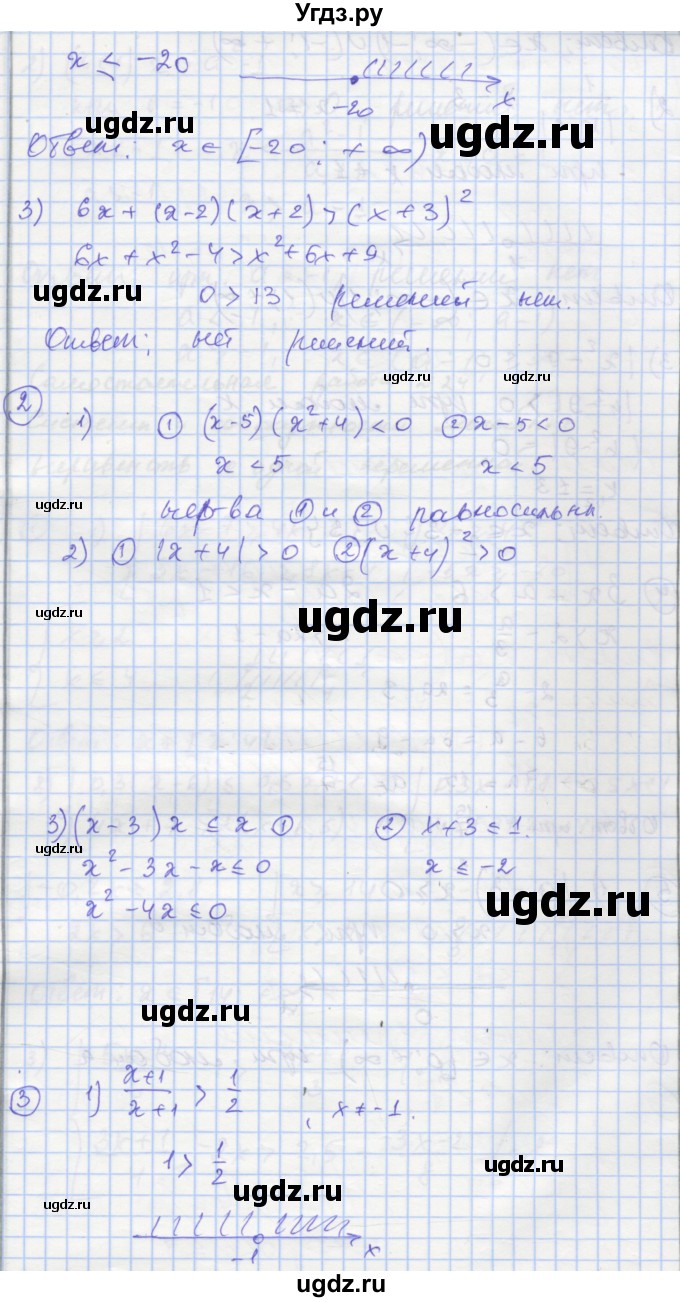 Угдз.ру
x ≤ -20
-20 x
ugdz.ru ugdz.ru
Ответ: x ∈ [-20; +∞)
3) 6x + (x-2)(x+2) > (x+3)²
6x + x² - 4 > x² + 6x + 9
ugdz.ru
0 > 13 решений нет.
Ответ: нет решений.
ugdz.ru ugdz.ru
② 1) ① (x-5)(x²+4) < 0 ② x-5 < 0
x < 5 x < 5
ugdz.ru
нер-ва ① и ② равносильны.
2) ① |x+4| > 0 ② (x+4)² > 0
ugdz.ru ugdz.ru
3) (x-3)x ≤ x ① ② x+3 ≤ 1.
ugdz.ru
x² - 3x - x ≤ 0 x ≤ -2
ugdz.ru
x² - 4x ≤ 0
ugdz.ru
③ 1) x+1/x+1 > 1/2 , x ≠ -1.
ugdz.ru
1 > 1/2
ugdz.ru ugdz.ru
-1 x
ugdz.ru